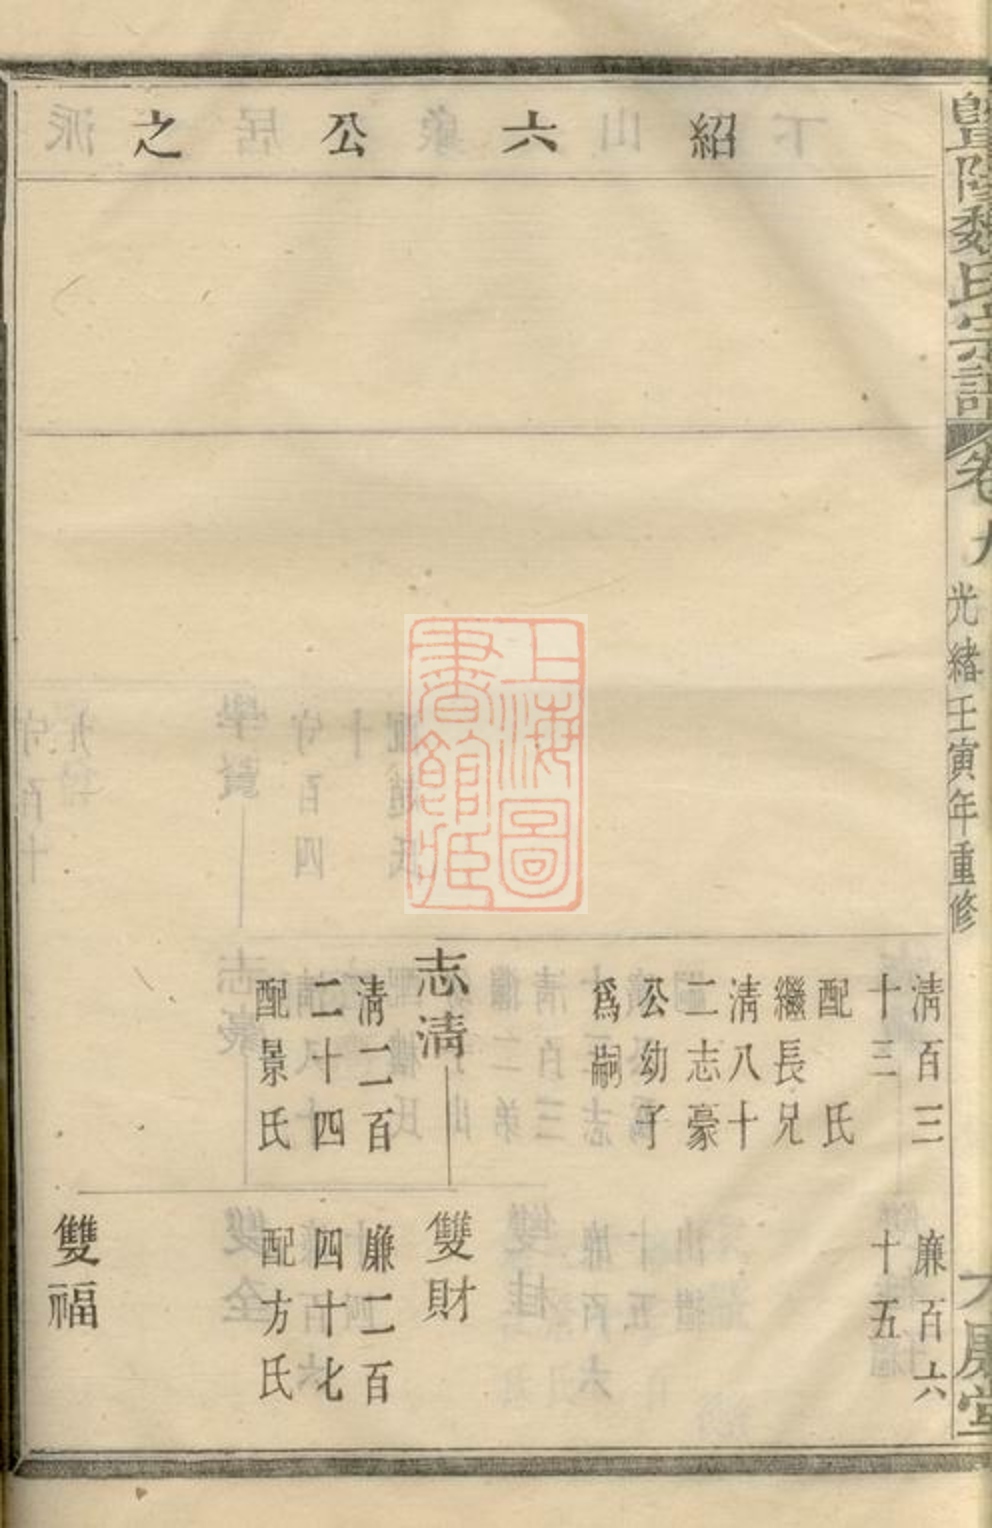 暨陽魏氏宗譜
卷九
光緒壬寅年重修
紹六公之
清百三
十三
配　氏
繼長兄
清八十
二志豪
公幼子
為嗣
志清
清二百
二十四
配景氏
廉百六
十五
雙財
廉二百
四十七
配方氏
雙福
上海圖
書館藏